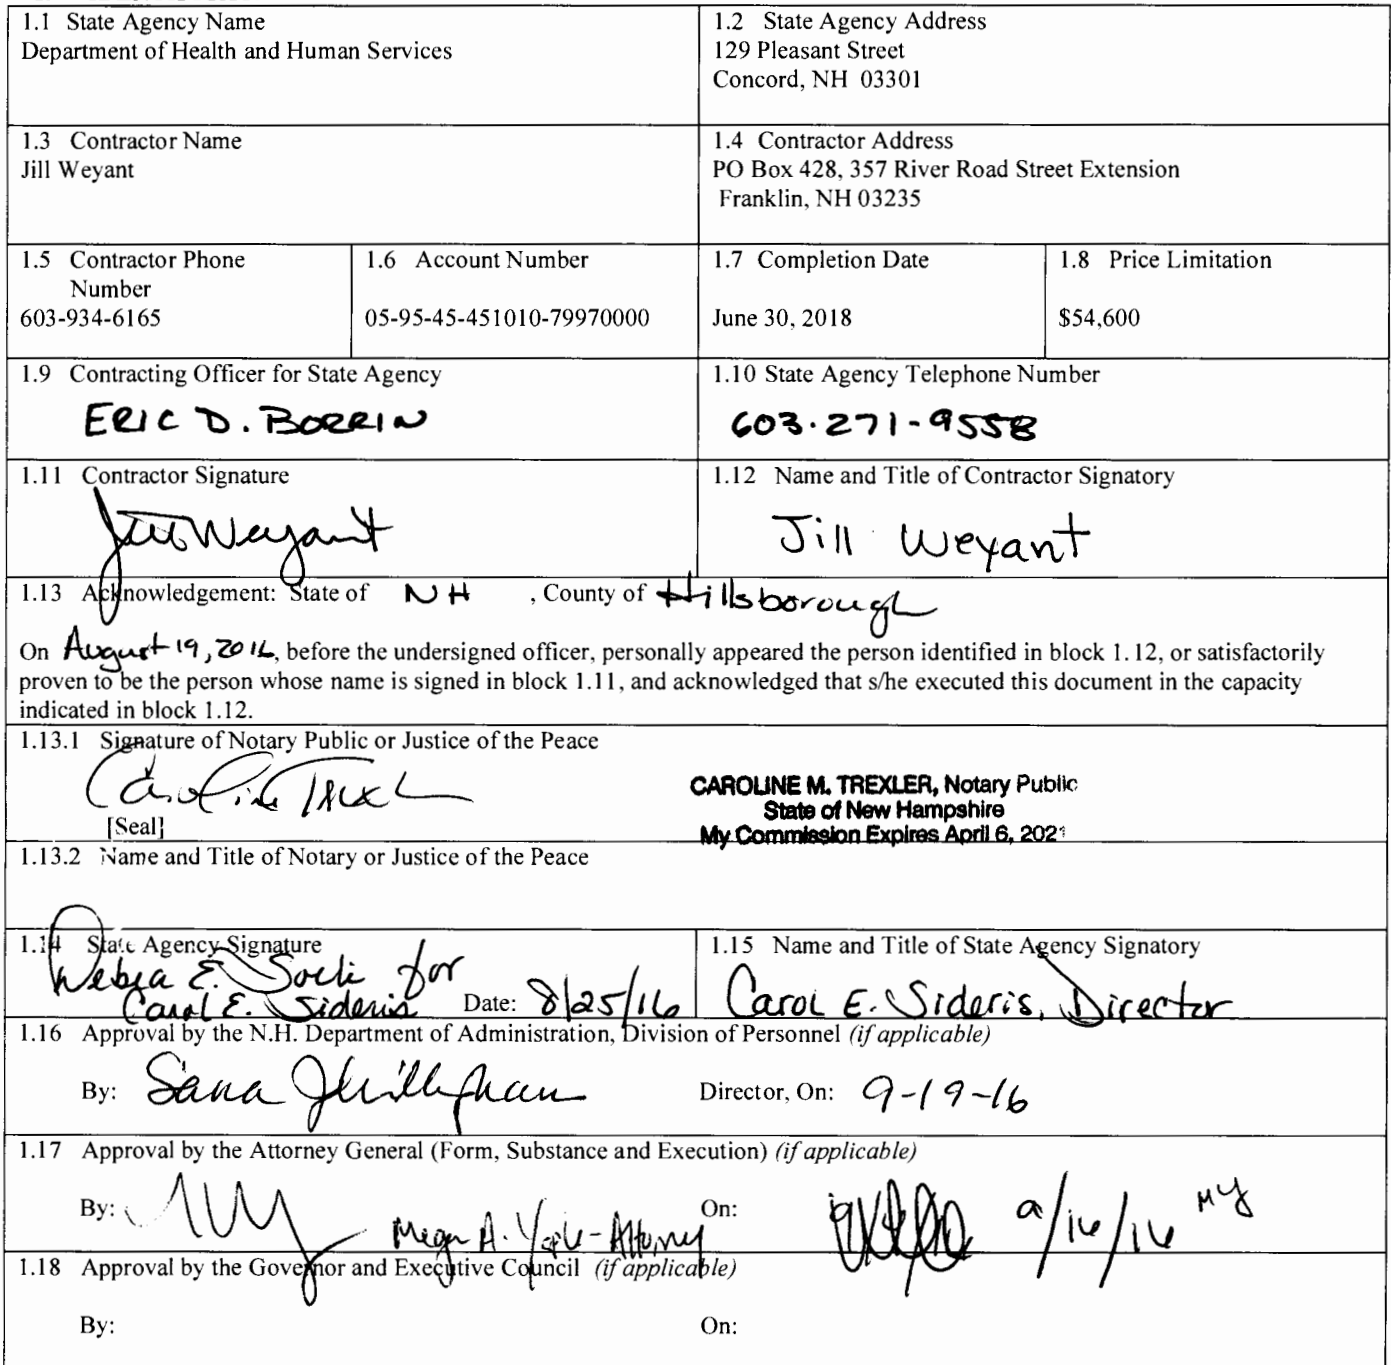 1.1 State Agency Name
Department of Health and Human Services
1.2 State Agency Address
129 Pleasant Street
Concord, NH 03301
1.3 Contractor Name
Jill Weyant
1.4 Contractor Address
PO Box 428, 357 River Road Street Extension
Franklin, NH 03235
1.5 Contractor Phone
Number
603-934-6165
1.6 Account Number
05-95-45-451010-79970000
1.7 Completion Date
June 30, 2018
1.8 Price Limitation
$54,600
1.9 Contracting Officer for State Agency
ERIC D. BORRIN
1.10 State Agency Telephone Number
603.271-9558
1.11 Contractor Signature
Jill Weyant
1.12 Name and Title of Contractor Signatory
Jill Weyant
1.13 Acknowledgement: State of NH , County of Hillsborough
On August 19, 2016, before the undersigned officer, personally appeared the person identified in block 1.12, or satisfactorily
proven to be the person whose name is signed in block 1.11, and acknowledged that s/he executed this document in the capacity
indicated in block 1.12.
1.13.1 Signature of Notary Public or Justice of the Peace
Caroline Trexler
[Seal]
CAROLINE M. TREXLER, Notary Public
State of New Hampshire
My Commission Expires April 6, 2021
1.13.2 Name and Title of Notary or Justice of the Peace
1.14 State Agency Signature
Debra E. for
Carol E. Sideris Date: 8/25/16
1.15 Name and Title of State Agency Signatory
Carol E. Sideris, Director
1.16 Approval by the N.H. Department of Administration, Division of Personnel (if applicable)
By: Sara Director, On: 9-19-16
1.17 Approval by the Attorney General (Form, Substance and Execution) (if applicable)
By: Megan A. - Attorney On: 9/16/16 MY
1.18 Approval by the Governor and Executive Council (if applicable)
By: On: